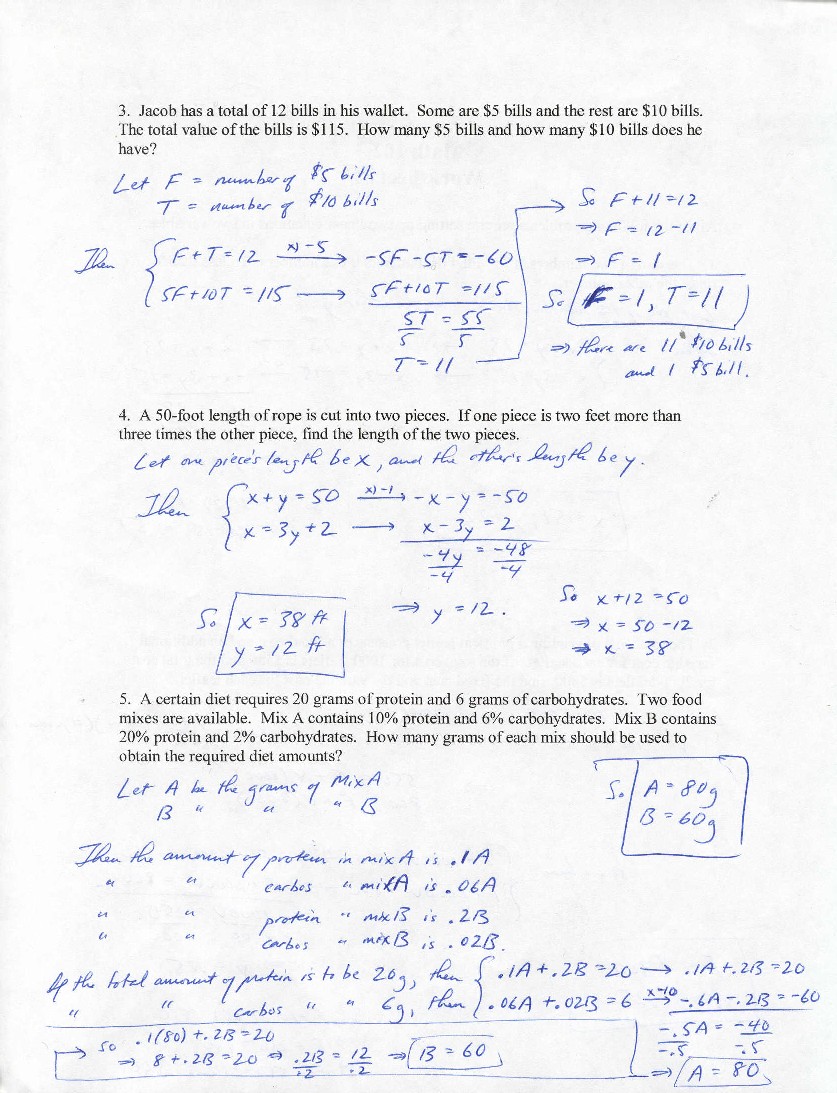 3. Jacob has a total of 12 bills in his wallet. Some are $5 bills and the rest are $10 bills.
The total value of the bills is $115. How many $5 bills and how many $10 bills does he
have?
Let F = number of $5 bills
T = number of $10 bills
Then { F+T=12 x)-5 → -5F-5T=-60
5F+10T=115 → 5F+10T=115
5T = 55
5 5
T=11
→ So F+11=12
⇒ F = 12-11
⇒ F = 1
So F=1, T=11
⇒ there are 11 $10 bills
and 1 $5 bill.
4. A 50-foot length of rope is cut into two pieces. If one piece is two feet more than
three times the other piece, find the length of the two pieces.
Let one piece's length be x, and the other's length be y.
Then { x+y=50 x)-1 → -x-y=-50
x=3y+2 → x-3y=2
-4y = -48
-4 -4
⇒ y=12.
So x+12=50
⇒ x = 50-12
⇒ x = 38
So x = 38 ft
y = 12 ft
5. A certain diet requires 20 grams of protein and 6 grams of carbohydrates. Two food
mixes are available. Mix A contains 10% protein and 6% carbohydrates. Mix B contains
20% protein and 2% carbohydrates. How many grams of each mix should be used to
obtain the required diet amounts?
Let A be the grams of Mix A
B " " " B
So A = 80g
B = 60g
Then the amount of protein in mix A is .1A
" " carbos " mixA is .06A
" " protein " mix B is .2B
" " carbos " mix B is .02B.
If the total amount of protein is to be 20g, then { .1A+.2B=20 → .1A+.2B=20
" " carbos " " 6g, then .06A+.02B=6 x-10 → -.6A-.2B=-60
-.5A = -40
-.5 -.5
⇒ A = 80
→ so .1(80)+.2B=20
⇒ 8+.2B=20 ⇒ .2B = 12 ⇒ B = 60
.2 .2